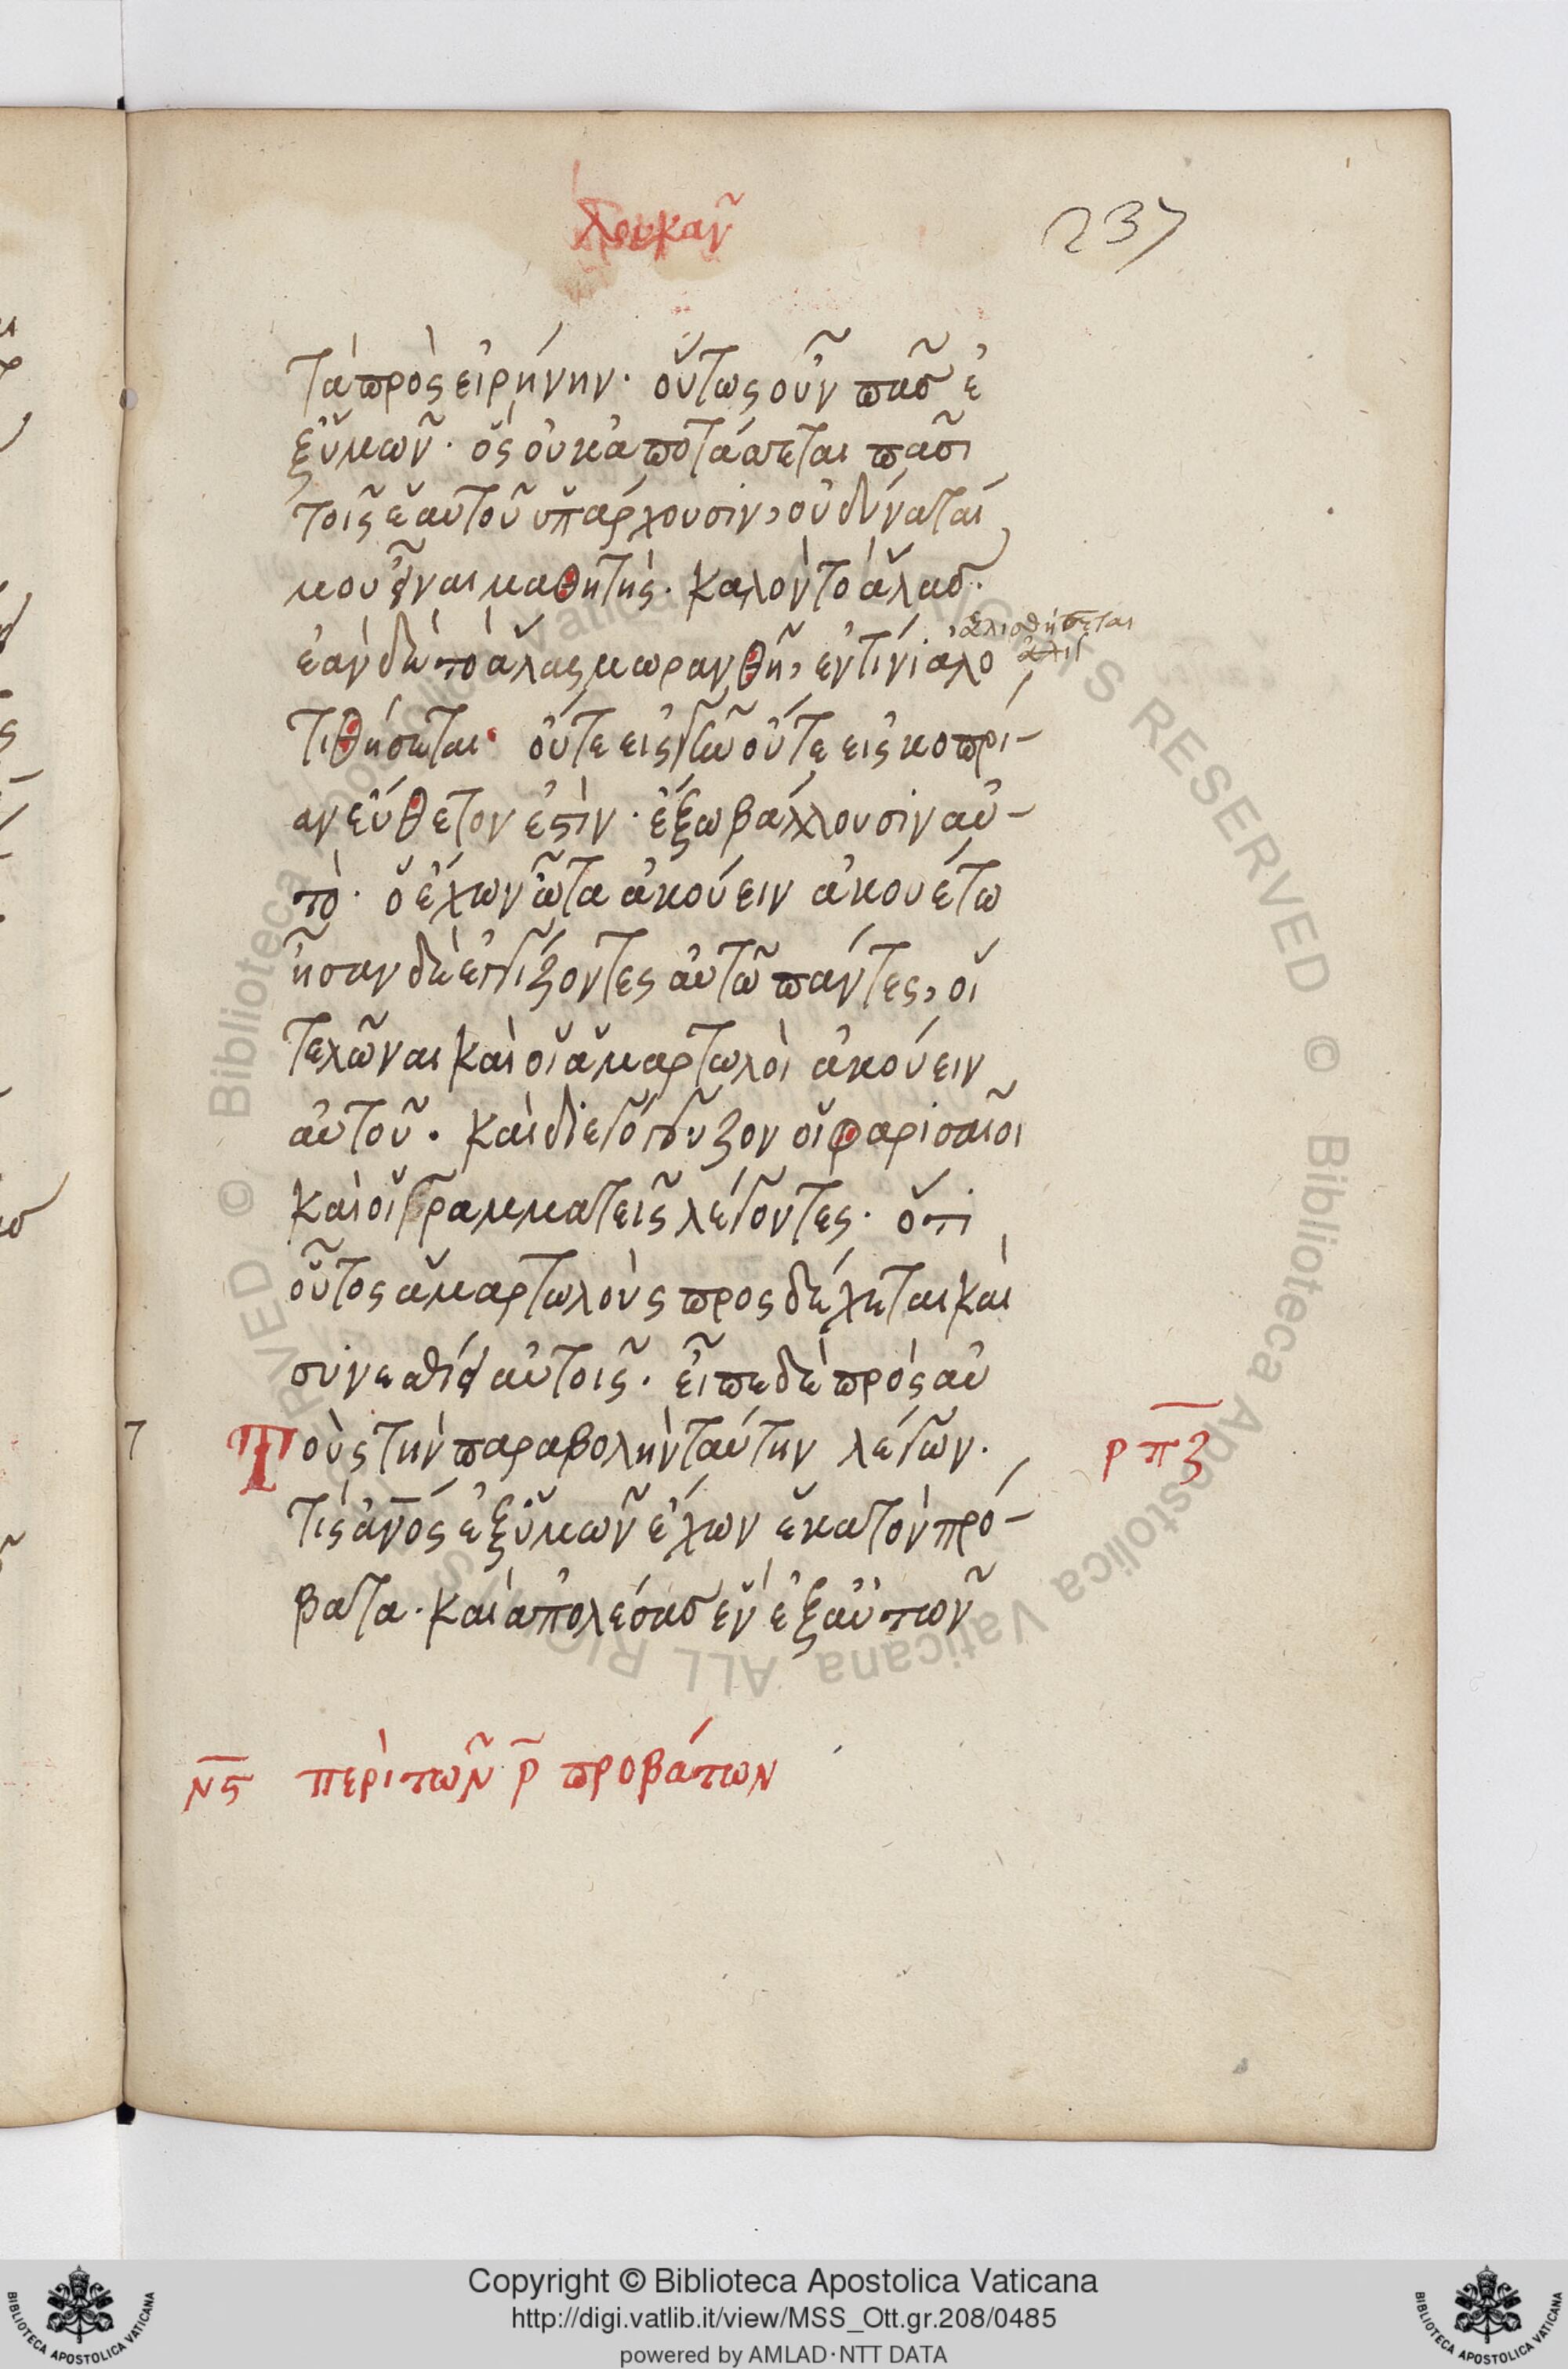 λουκᾶν
237
τὰ πρὸς εἰρήνην· οὕτως οὖν πᾶσ ἐ
ξ ὑμῶν· ὃς οὐκ ἀποτάσσεται πᾶσι
τοῖς ἑαυτοῦ ὑπάρχουσιν, οὐ δύναταί
μου εἶναι μαθητὴς· καλὸν τὸ ἅλασ·
ἐὰν δὲ τὸ ἅλας μωρανθῆ, ἐν τίνι αλο
ἁλισθήσεται
τιθήσεται· οὔτε εἰς γῆν οὔτε εἰς κοπρί-
αν εὔθετον ἐστὶν· ἔξω βάλλουσιν αὐ-
τὸ· ὁ ἔχων ὦτα ἀκούειν ἀκουέτω
ἦσαν δὲ ἐγγίζοντες αὐτῶ πάντες, οἱ
τελῶναι καὶ οἱ ἁμαρτωλοὶ ἀκούειν
αὐτοῦ. καὶ διεγόγγυζον οἱ φαρισαῖοι
καὶ οἱ γραμματεῖς λέγοντες· ὅτι
οὗτος ἁμαρτωλοὺς προςδέχεται καὶ
συνεσθίει αὐτοῖς. εἶπε δὲ πρὸς αὐ
Τοὺς τὴν παραβολὴν ταύτην λέγων.
ρπζ
τίς ἀνος ἐξ ὑμῶν ἔχων ἑκατὸν πρό-
βατα. καὶ ἀπολέσασ ἓν ἐξ αὐτῶν
νς περὶ τῶν ρ προβάτων
Copyright © Biblioteca Apostolica Vaticana
http://digi.vatlib.it/view/MSS_Ott.gr.208/0485
powered by AMLAD·NTT DATA
BIBLIOTECA APOSTOLICA VATICANA
BIBLIOTECA APOSTOLICA VATICANA
© Biblioteca Apostolica Vaticana ALL RIGHTS RESERVED © Biblioteca Apostolica Vaticana ALL RIGHTS RESERVED